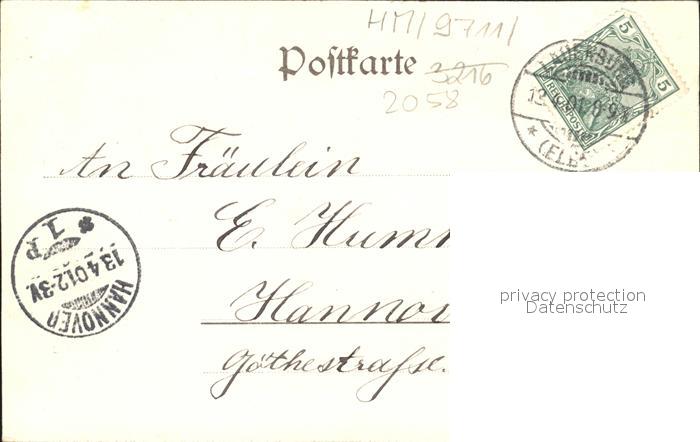 HM/9711/
Postkarte 3216
2058
5
5
REICHSPOST
LAUENBURG
13.4.01.8-9V.
* (ELBE)
An Fräulein
E. Hum
Hanno
Göthestrasse.
HANNOVER
13.4.01.2-3V.
* 1 P
privacy protection
Datenschutz